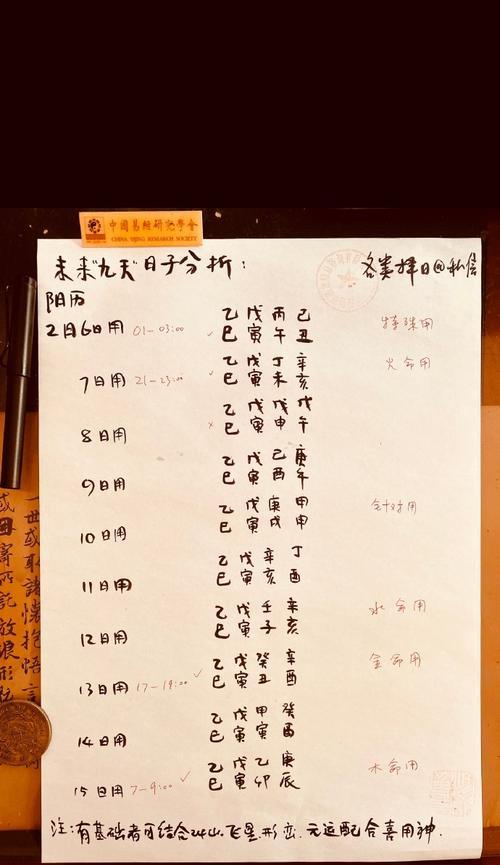 中國易經研究學會
CHINA YIJING RESEARCH SOCIETY
未来"九天"日子分析:
各类择日@私信
阳历
2月6日用 01-03:00 ✓
乙 戊 丙 己
巳 寅 午 丑
特殊用
7日用 21-23:00 ✓
乙 戊 丁 辛
巳 寅 未 亥
火命用
8日用 ×
乙 戊 戊 戊
巳 寅 申 午
9日用
乙 戊 己 庚
巳 寅 酉 午
10日用
乙 戊 庚 甲
巳 寅 戌 申
针对用
11日用
乙 戊 辛 丁
巳 寅 亥 酉
12日用
乙 戊 壬 辛
巳 寅 子 亥
水命用
13日用 17-19:00 ✓
乙 戊 癸 辛
巳 寅 丑 酉
金命用
14日用
乙 戊 甲 癸
巳 寅 寅 酉
15日用 7-9:00 ✓
乙 戊 乙 庚
巳 寅 卯 辰
木命用
注:有基础者可结合24山.飞星.形峦.元运配合喜用神.
一世或取諸懷抱悟言
或因寄所託放浪形